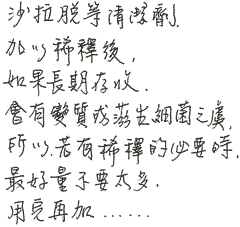 沙拉脫等清潔劑,
加以稀釋後,
如果長期存收,
會有變質或滋生細菌之虞,
所以,若有稀釋的必要時,
最好量不要太多,
用完再加......